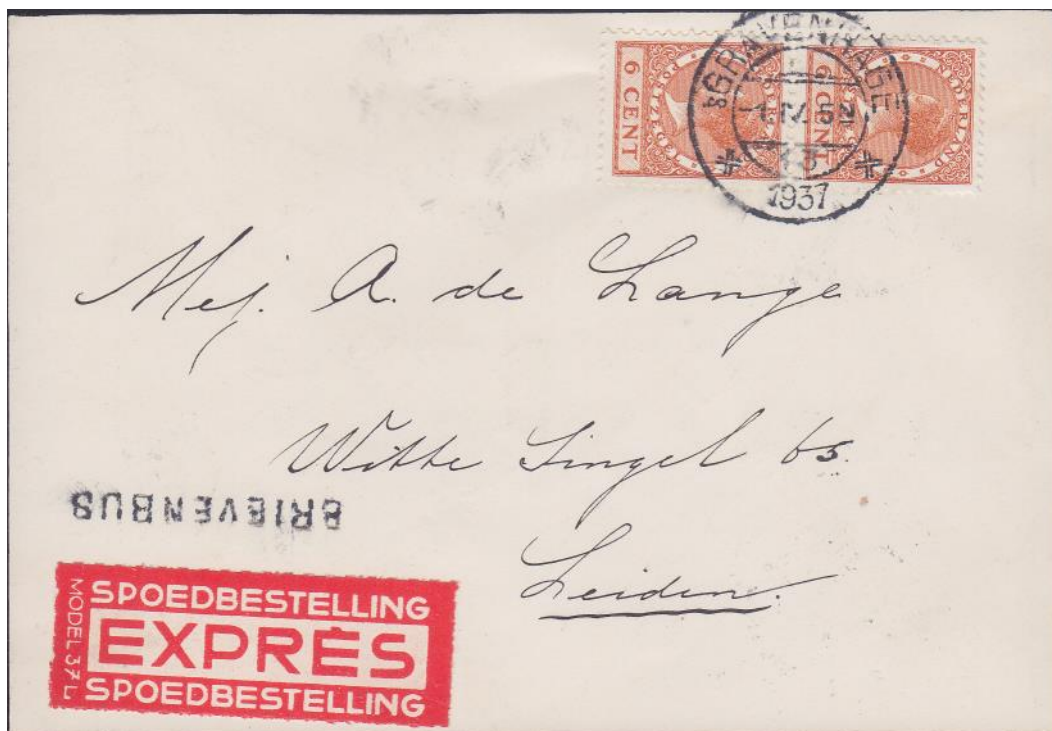 6 CENT
POSTZEGEL
6 CENT
NEDERLAND
'sGRAVENHAGE
1937
Mej. A. de Lange
Witte Singel 65.
Leiden.
BRIEVENBUS
MODEL 37L
SPOEDBESTELLING
EXPRÈS
SPOEDBESTELLING